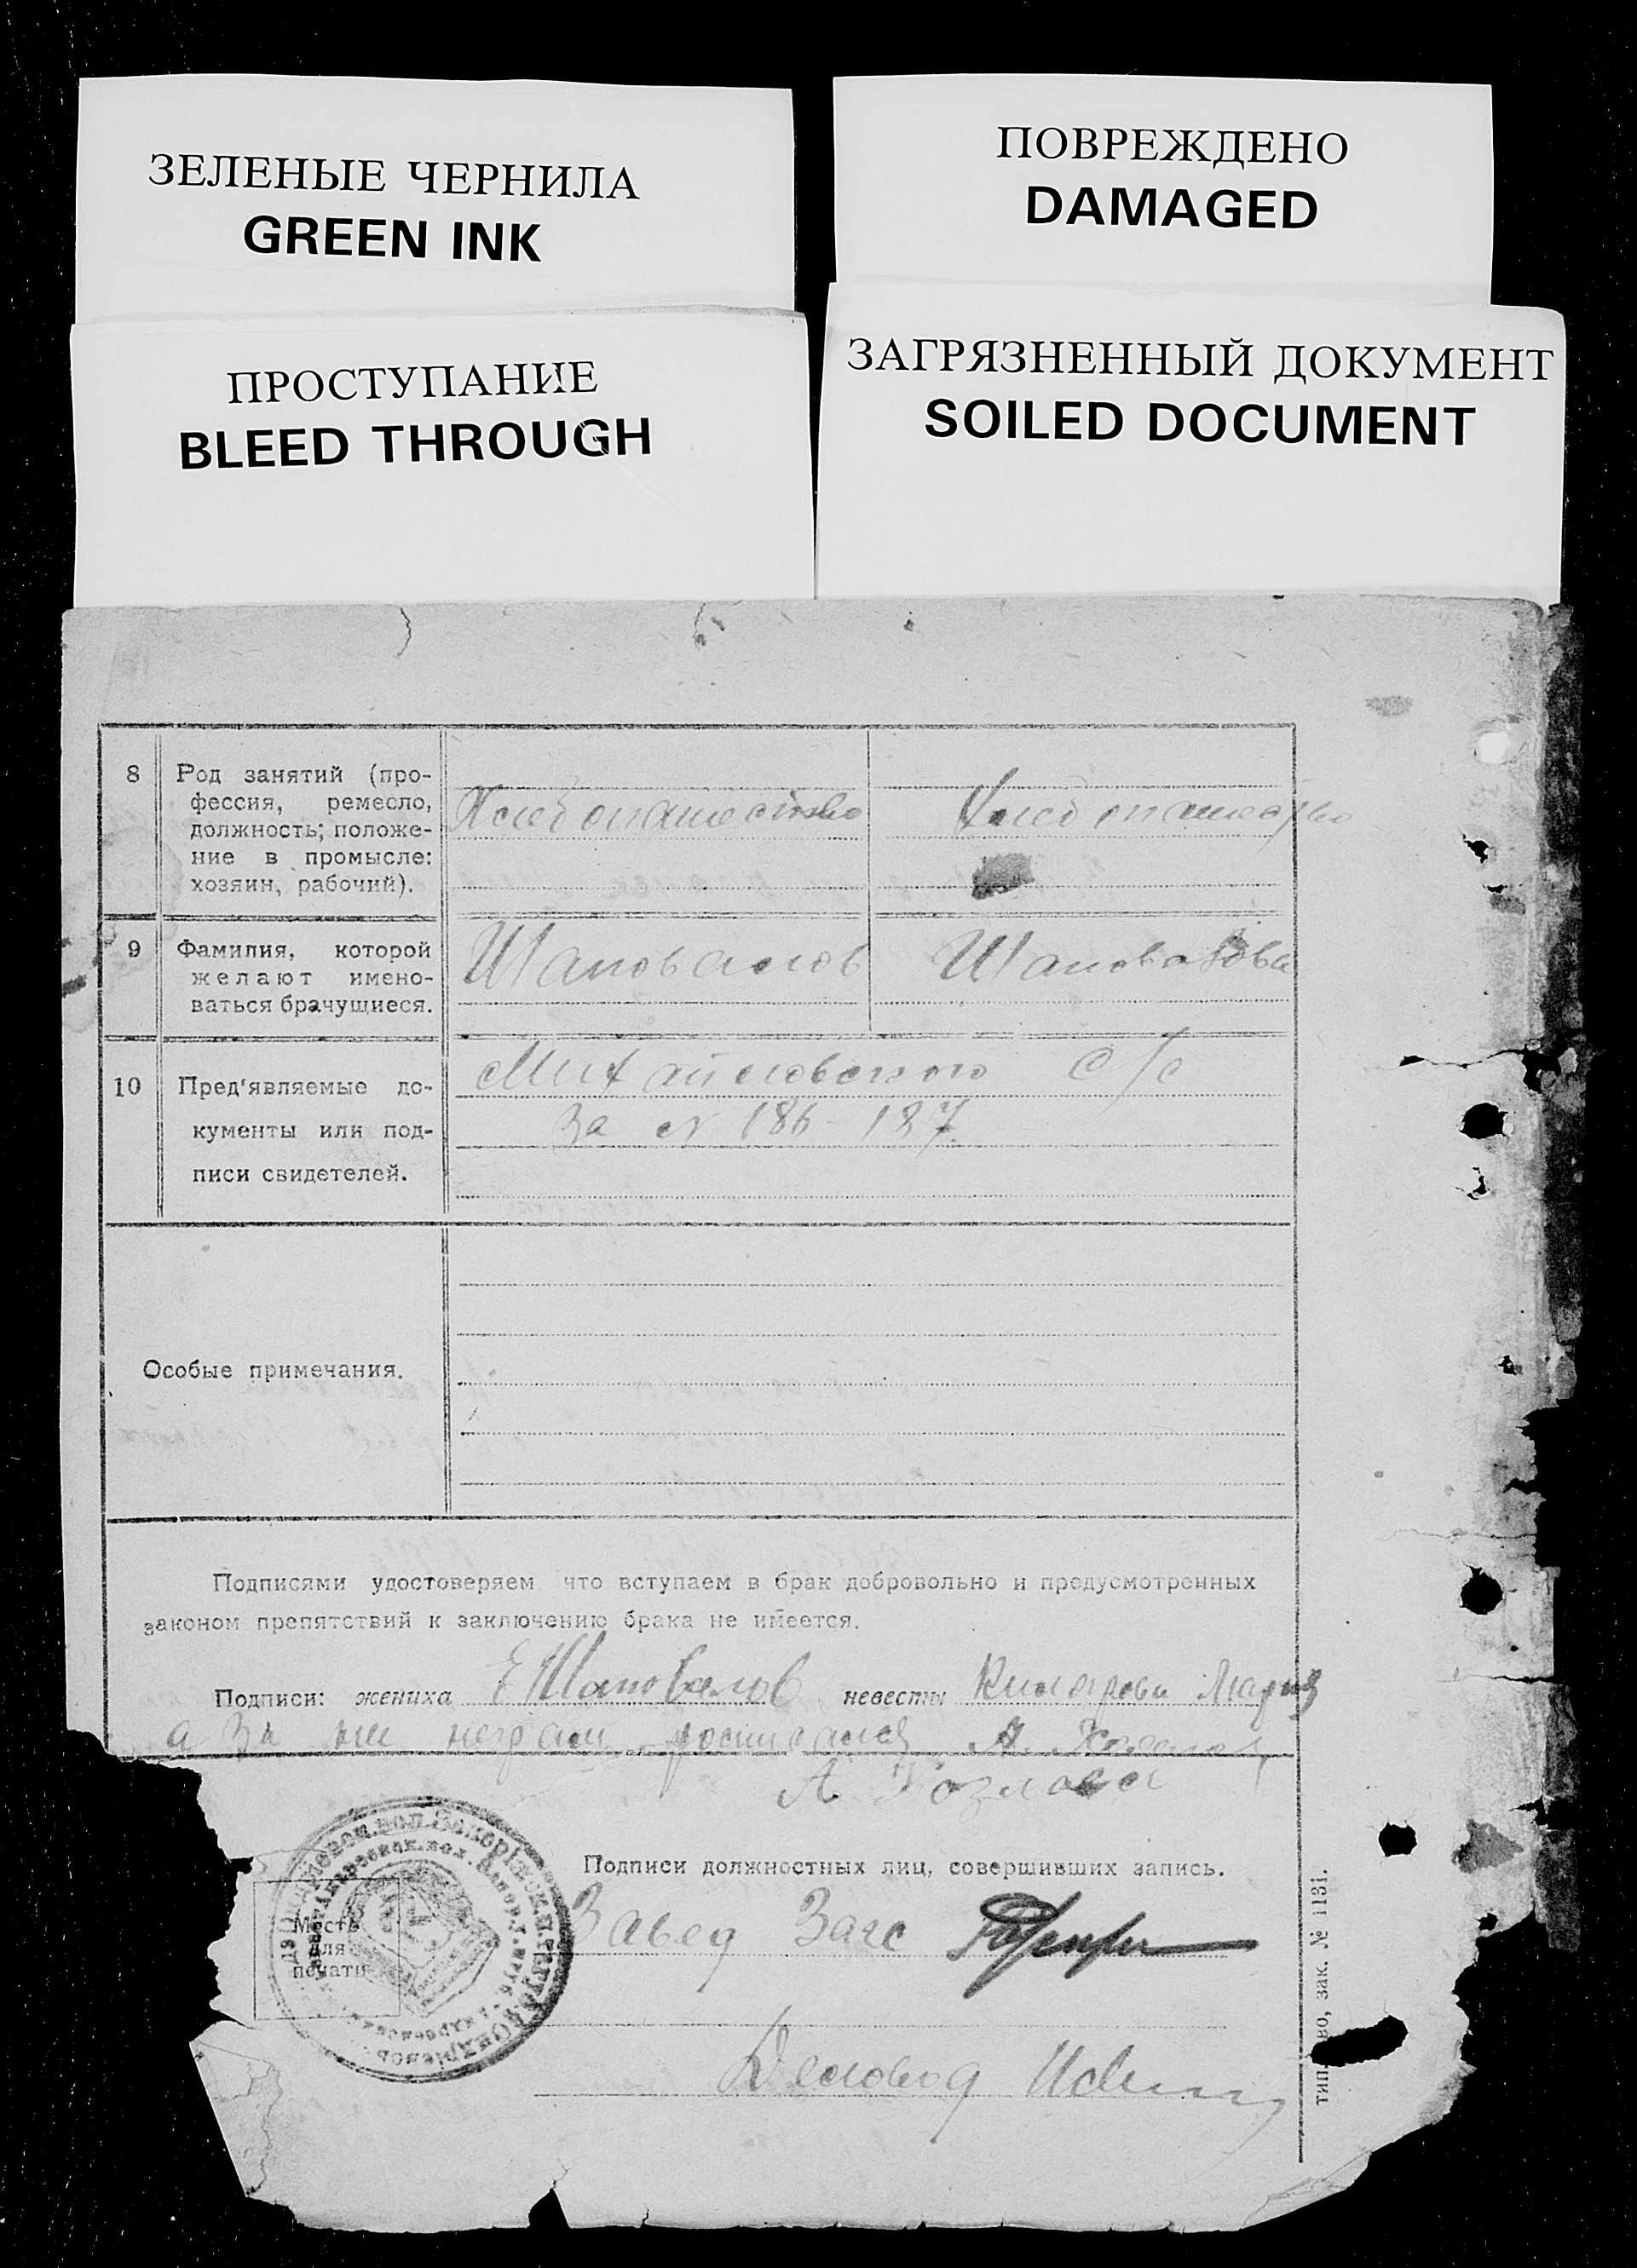 ЗЕЛЕНЫЕ ЧЕРНИЛА
GREEN INK
ПОВРЕЖДЕНО
DAMAGED
ПРОСТУПАНИЕ
BLEED THROUGH
ЗАГРЯЗНЕННЫЙ ДОКУМЕНТ
SOILED DOCUMENT
8 Род занятий (про-
фессия, ремесло,
должность; положе-
ние в промысле:
хозяин, рабочий).
Хлебопашество Хлебопашество
9 Фамилия, которой
желают имено-
ваться брачущиеся.
Шаповалов Шаповалова
10 Пред'являемые до-
кументы или под-
писи свидетелей.
Михайловского с/с
За № 186-187
Особые примечания.
Подписями удостоверяем что вступаем в брак добровольно и предусмотренных
законом препятствий к заключению брака не имеется.
Подписи: жениха Е Шаповалов невесты Мария
а за
А. Козлова
Место
для
печати
Подписи должностных лиц, совершивших запись.
Завед Загс
Деловод
тип во, зак. № 1131.